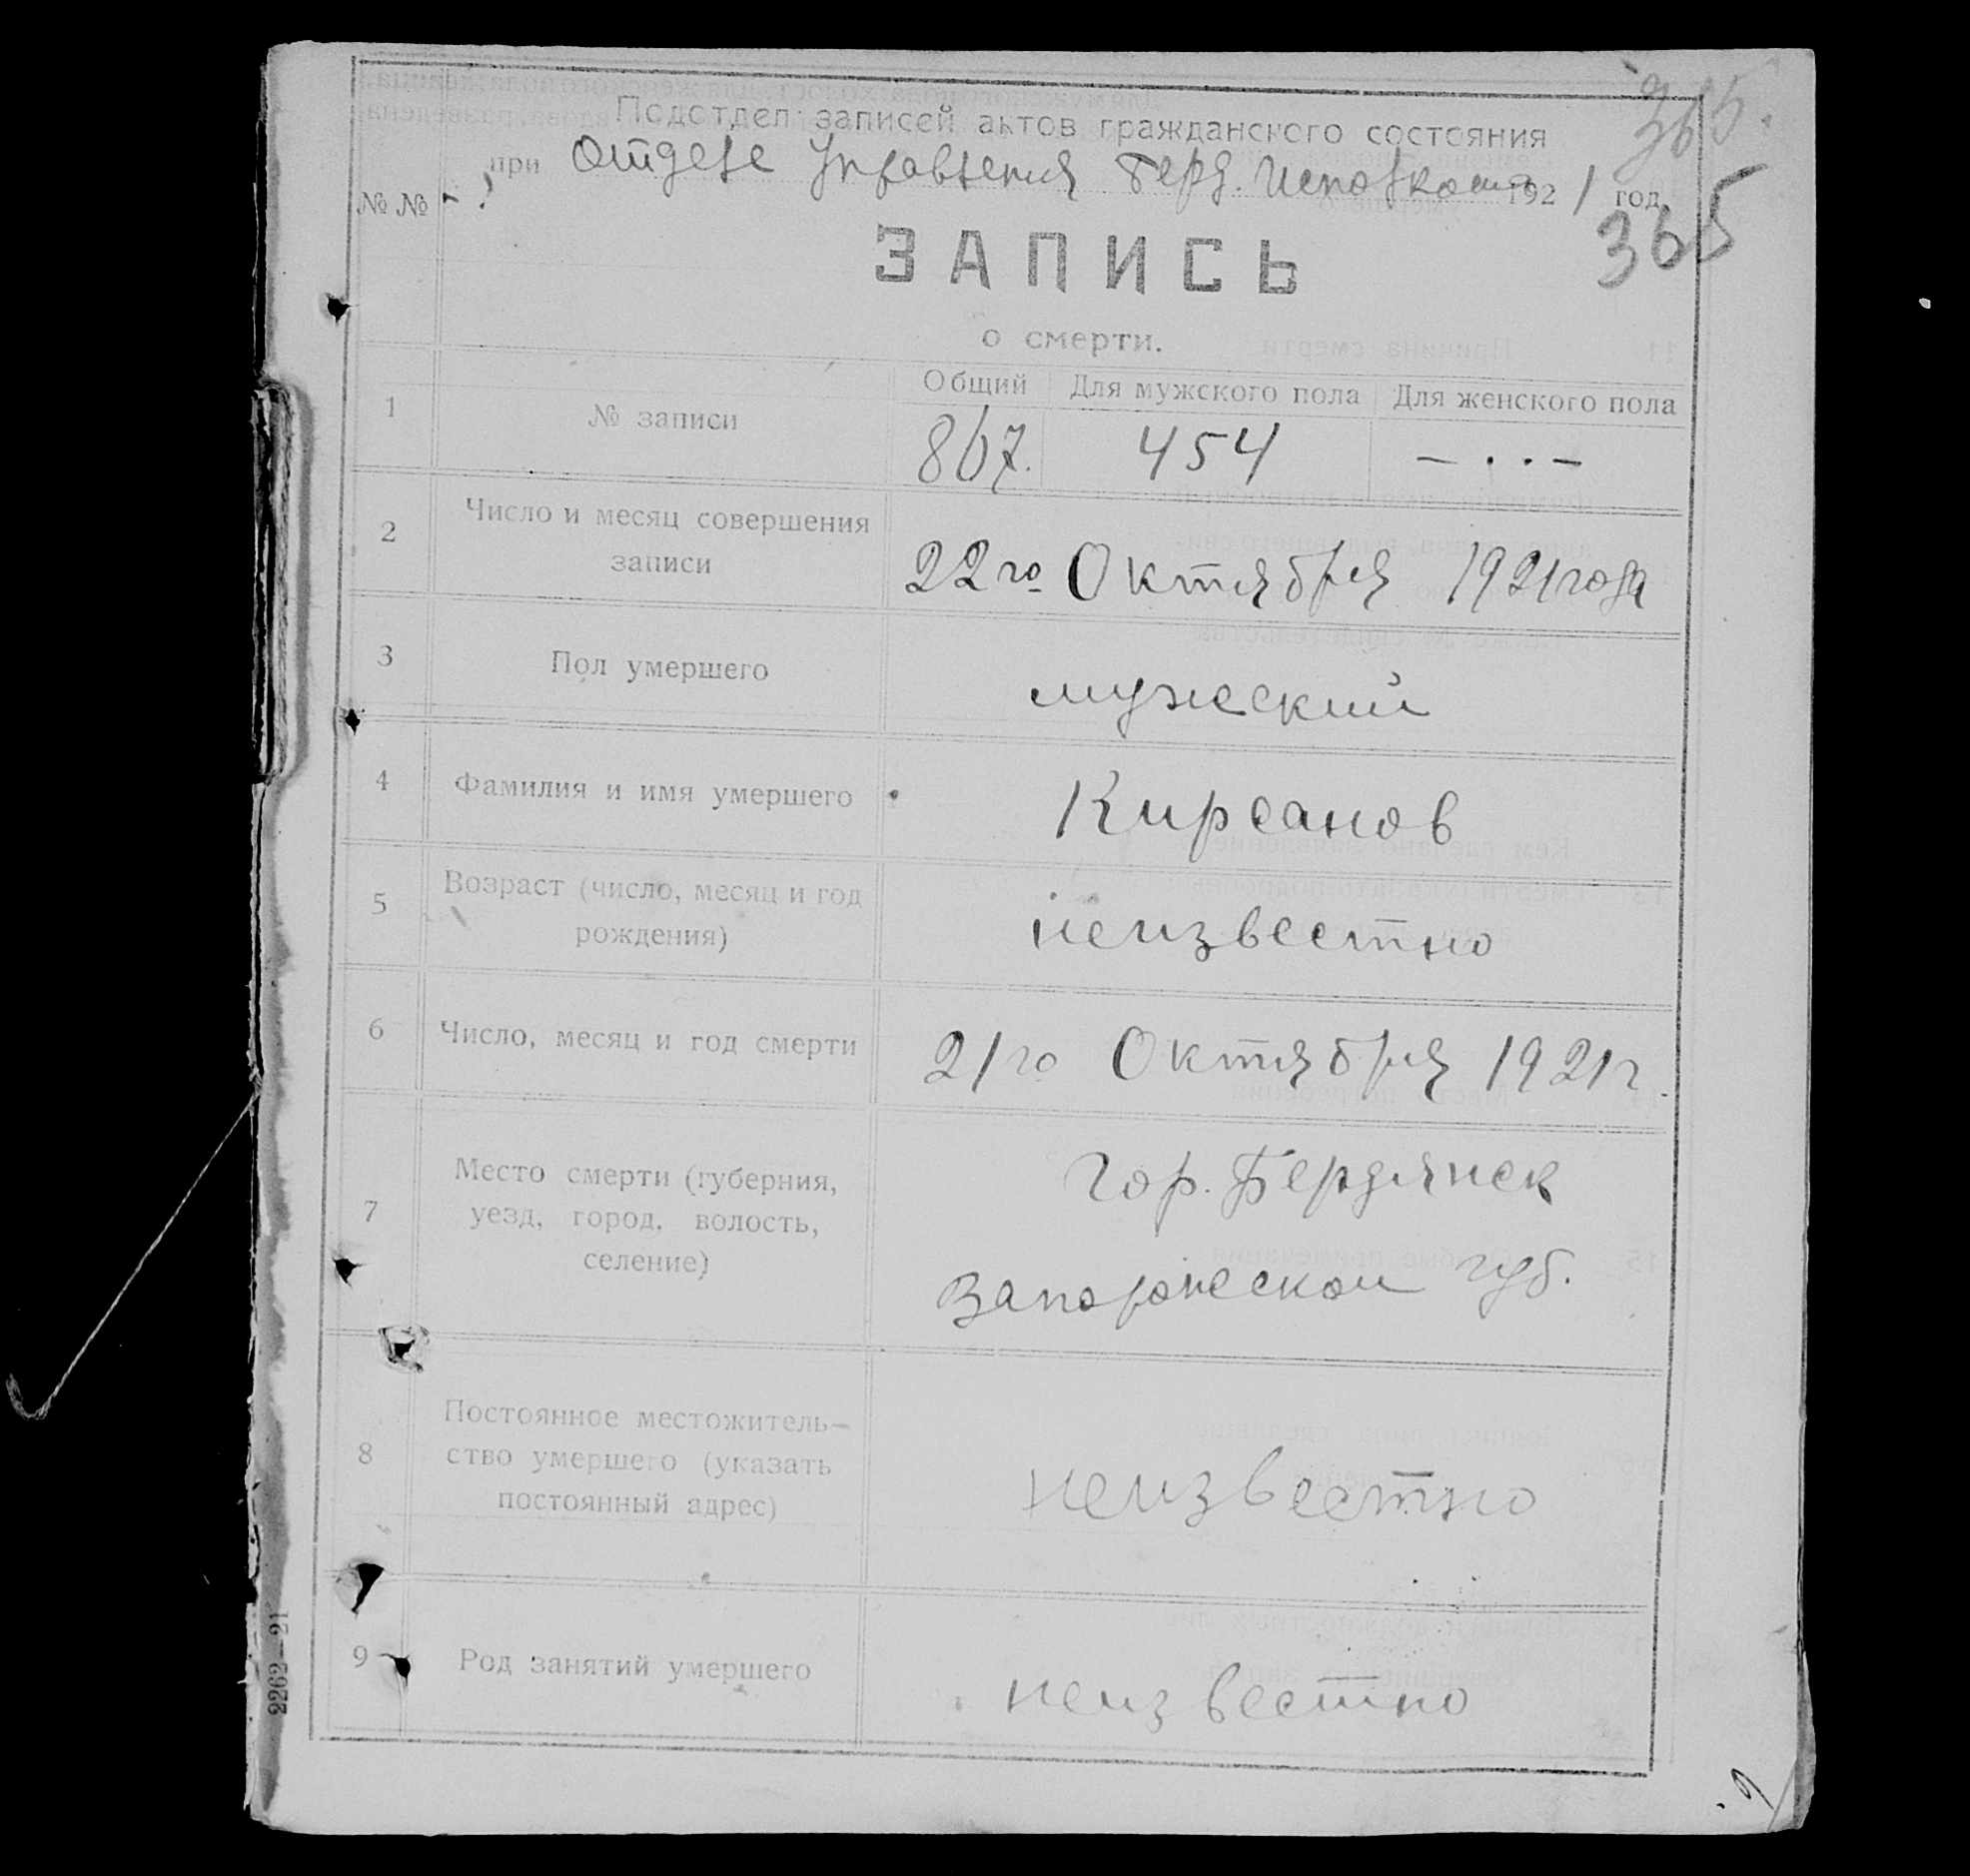 365.
Подотдел записей актов гражданского состояния
при Отделе Управления Берд. Исполкома 1921 год.
№ №
365
ЗАПИСЬ
о смерти.
1 № записи Общий Для мужского пола Для женского пола
867. 454 — . . —
2 Число и месяц совершения записи
22го Октября 1921 года
3 Пол умершего мужеский
4 Фамилия и имя умершего Кирсанов
5 Возраст (число, месяц и год рождения)
неизвестно
6 Число, месяц и год смерти 21го Октября 1921г.
7 Место смерти (губерния, уезд, город, волость, селение)
гор. Бердянск
Запорожской губ.
8 Постоянное местожитель-
ство умершего (указать
постоянный адрес)
неизвестно
9 Род занятий умершего неизвестно